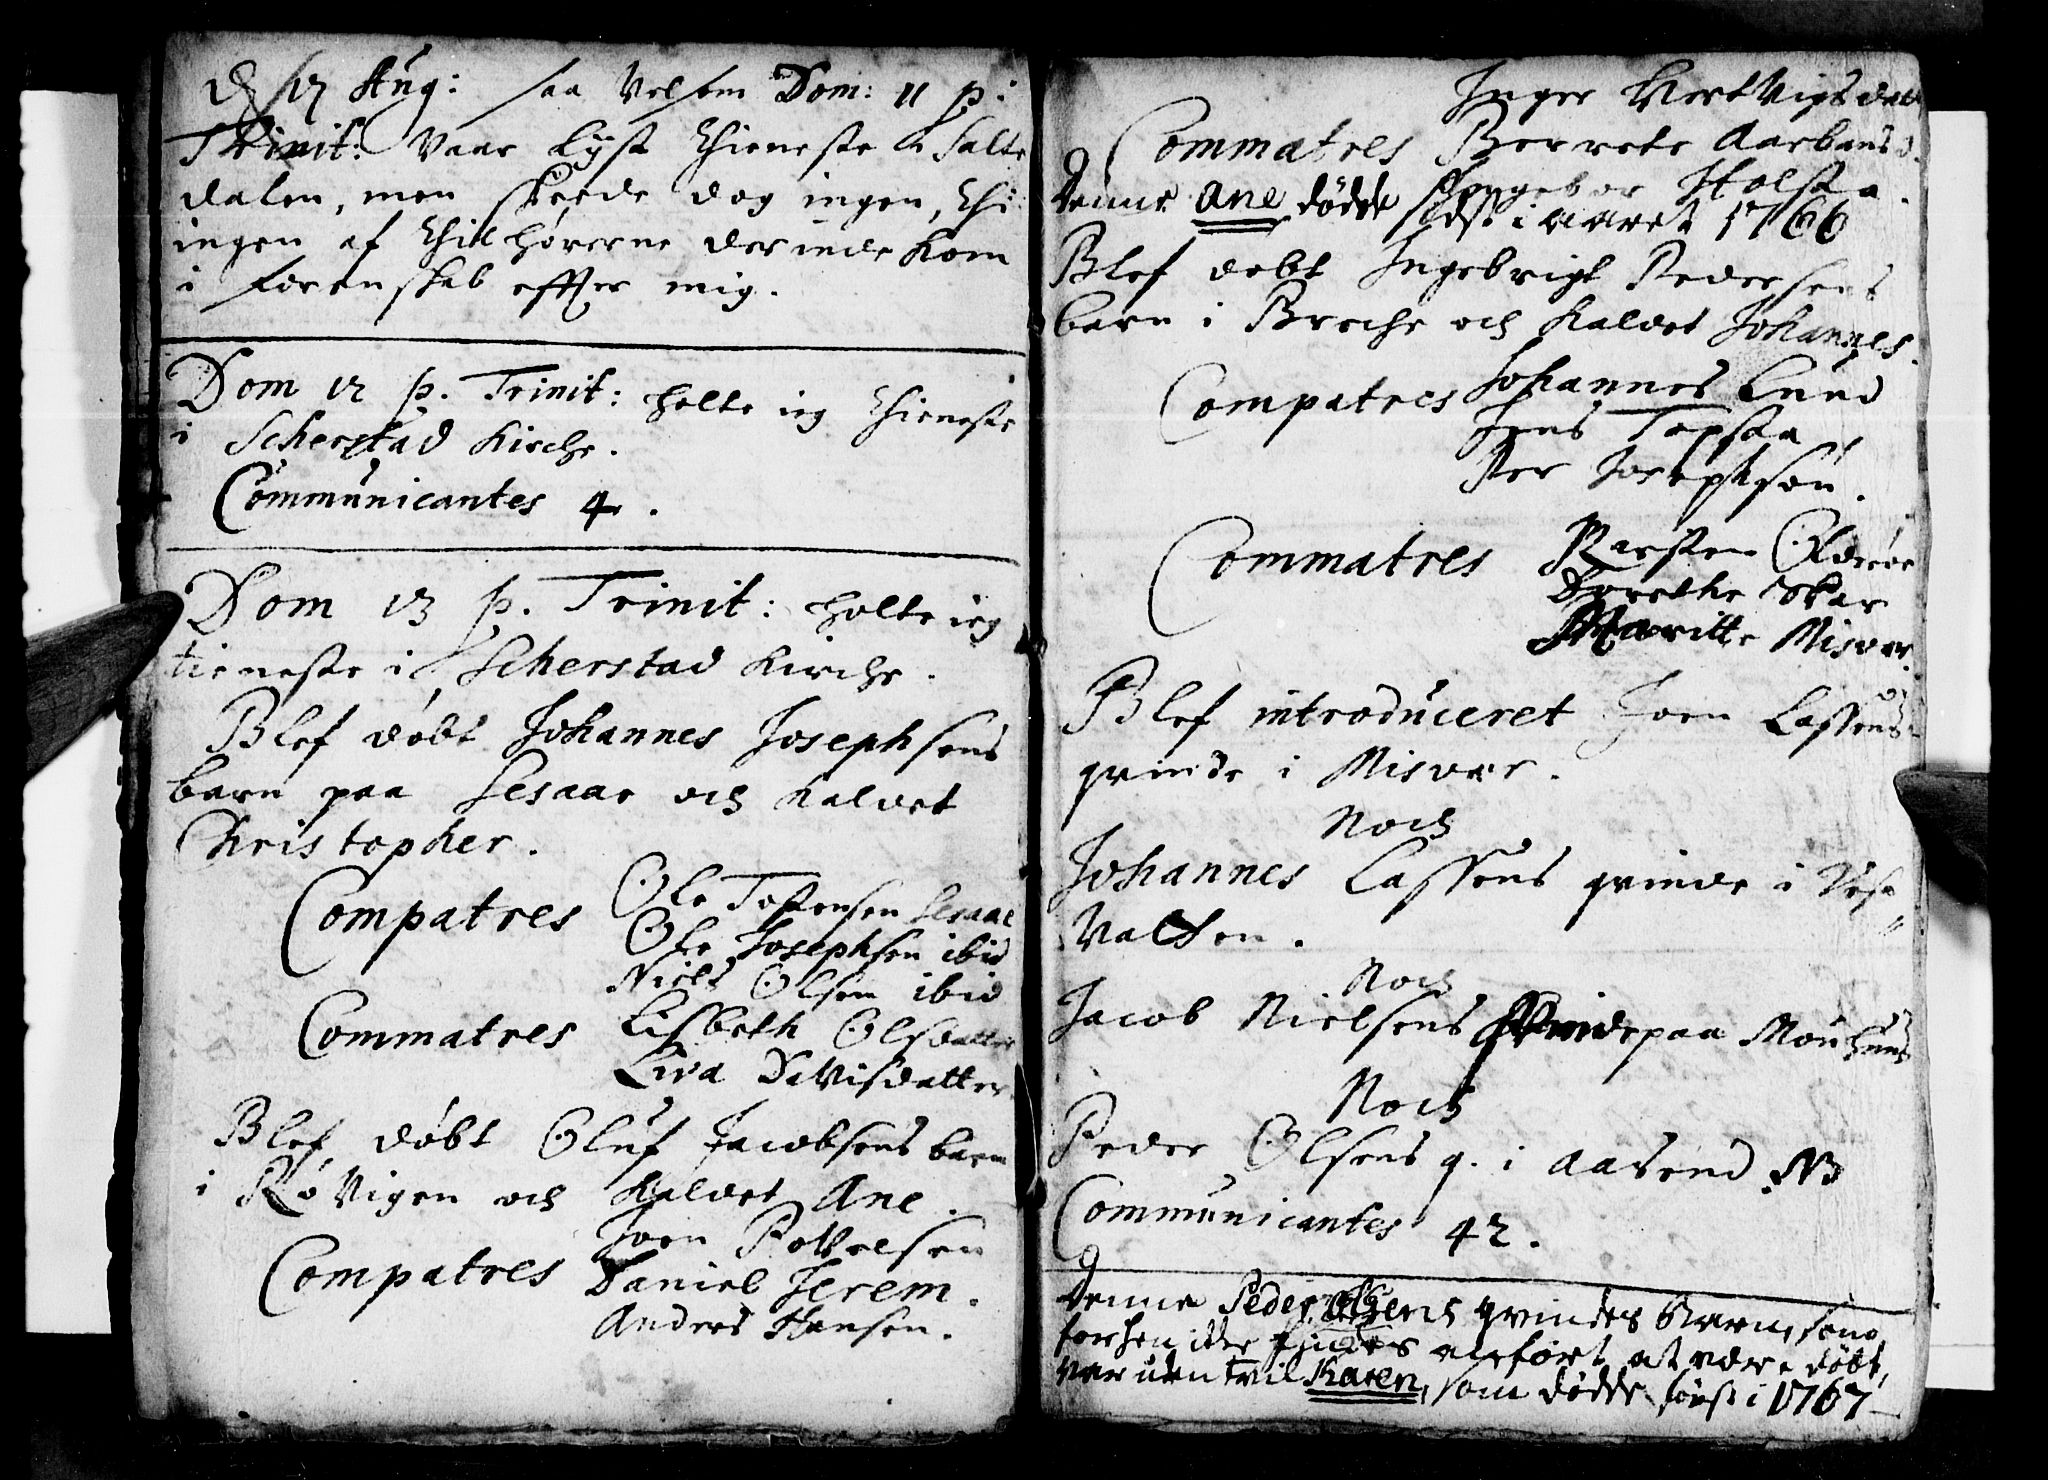 D. 17 Aug: saa velsom Dom: 11 p:
Trinit: Vaar lyst thieneste i Salte
dalen, men skeede dog ingen, thi
ingen af thilhørerne derinde kom
i førenskab effter mig.
Dom 12 p. Trinit: holte ieg thieneste
i Scherstad Kirche.
Communicantes 4.
Dom 13 p. Trinit: holte ieg
tieneste i Scherstad Kirche.
Blef døbt Johannes Josephsens
barn paa Lesaae och kaldet
Christopher.
Compatres Ole Tostensen Lesaae
Ole Josephsen ibid
Niels Olsen ibid
Commatres Lisbeth Olsdatter
Liva Davisdatter.
Blef døbt Oluf Jacobsens barn
i Røvigen och kaldet Ane.
Joen Povelsen
Compatres Daniel Jerem.
Anders Hansen.
Inger Hertvigsdatt
Commatres Berrete Aarbans d.
Ingebor Holsta.
denne Ane døde først i aaret 1766
Blef døbt Ingebrigt Pedersens
barn i Breche och kaldet Johannes.
Compatres Johannes Lund
Jens Topsaa
Per Josephsøn.
Commatres Karsten Olderøe
Dorethe Skar
Maritte Misvær.
Blef introduceret Joen Lassens
qvinde i Misvær.
Noch
Johannes Lassens qvinde i Vese
Valten.
Noch
Jacob Nielsens qvinde paa
Noch
Peder Olsens q. i Aasend NB
Communicantes 42.
Denne Peder Olsens qvindes Barn, som
forhen ikke findes anført at være døbt,
var uden tvil Karen, som døde først i 1767